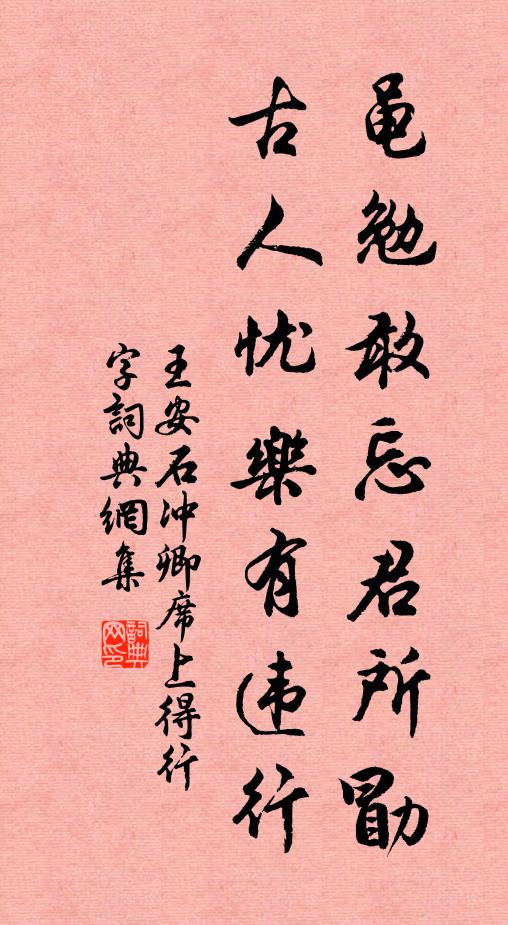 黾勉敢忘君所勖
古人忧樂有违行
王安石冲卿席上得行
字詞典網集
詞典网印